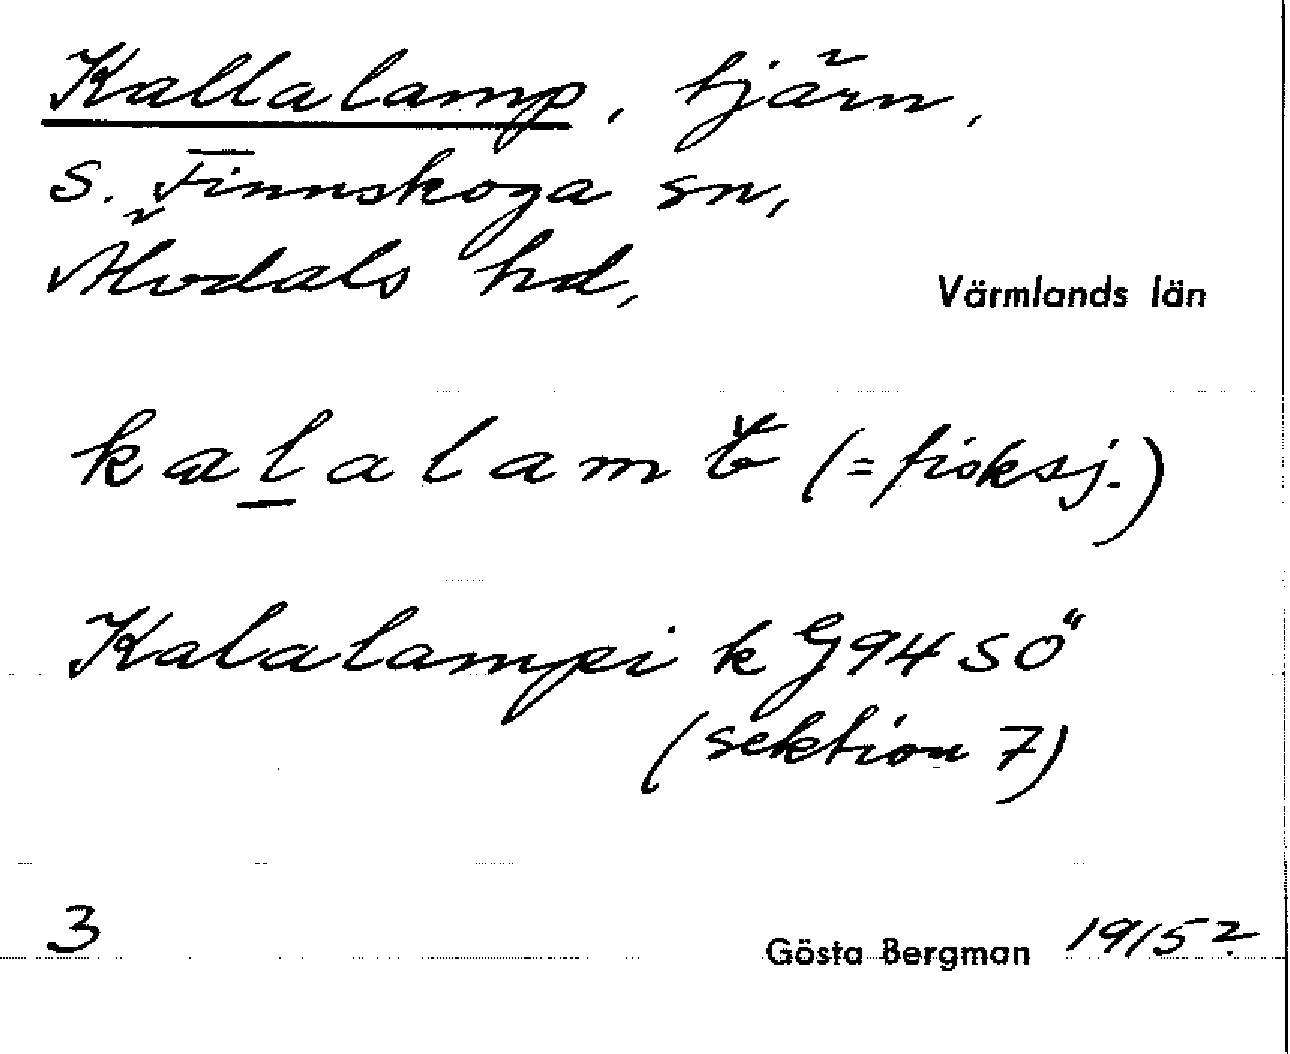 Kallalamp, tjärn,
S. Finnskoga sn,
Älvdals hd,
Värmlands län
kalalamt (= fisksj.)
Kalalampi k G94 SÖ
(sektion 7)
3
Gösta Bergman 1915?